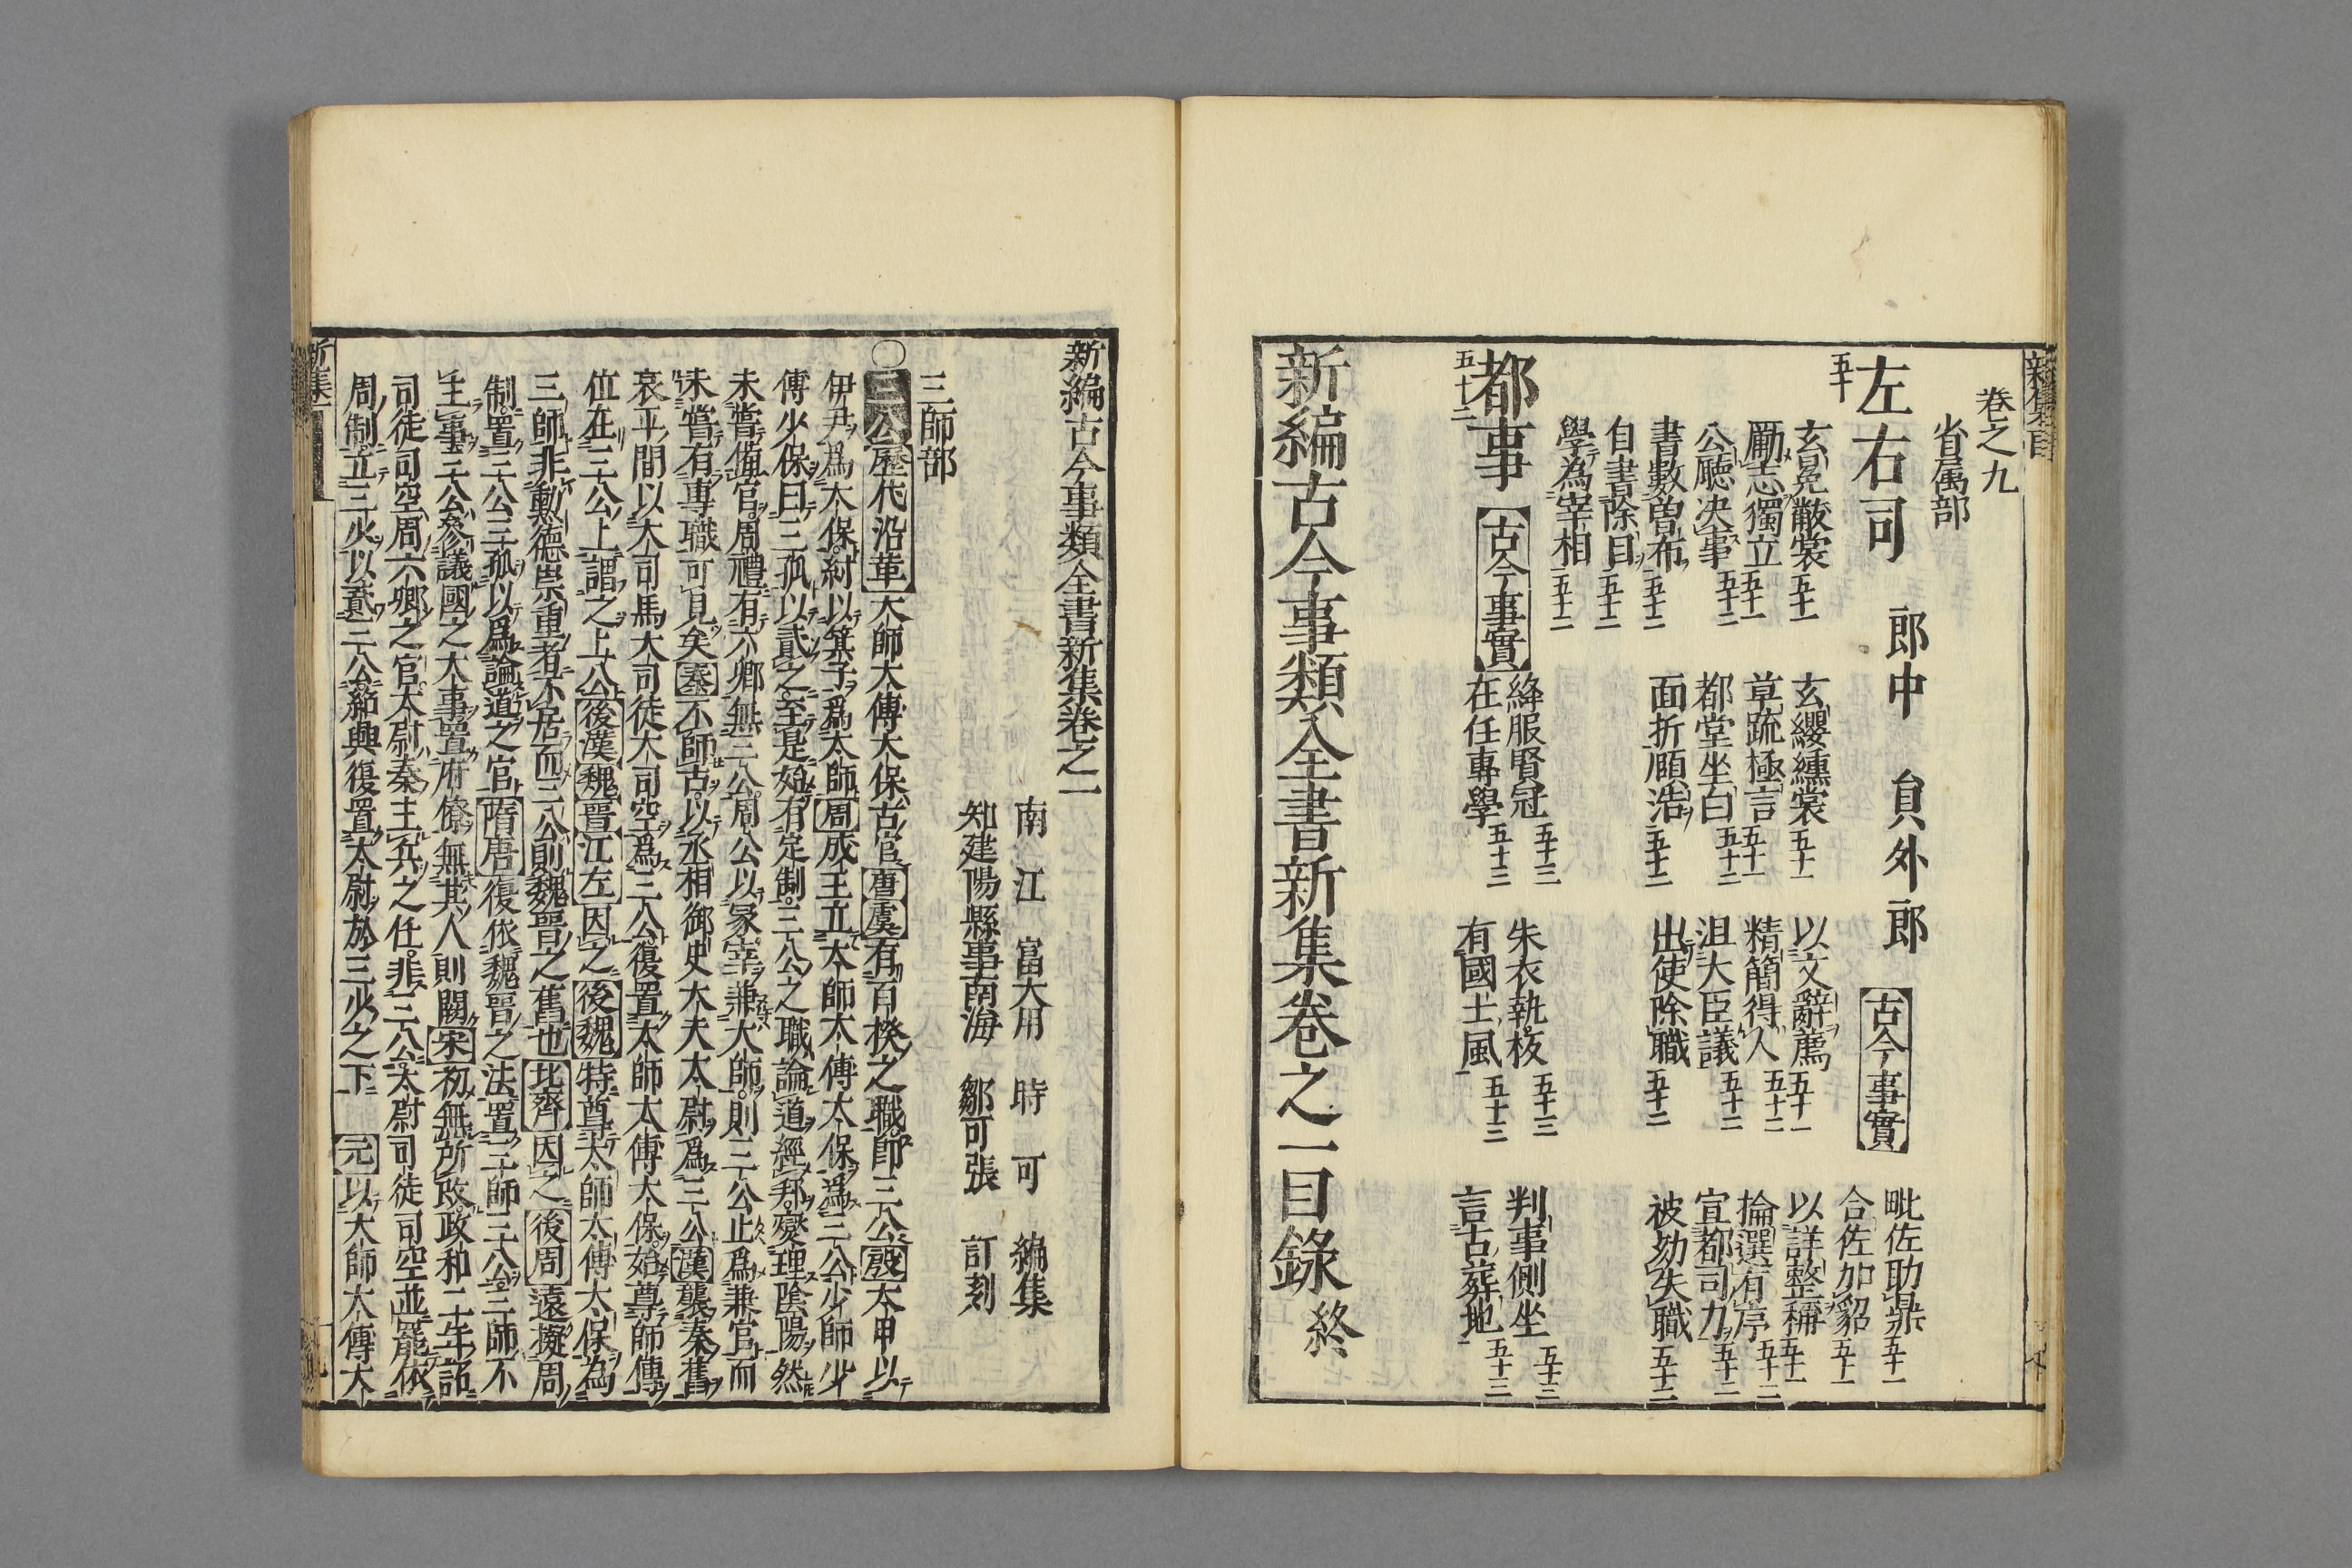 卷之九
省属部
左右司 郎中 貟外郎 古今事實 毗佐助鼎五十一
五十 合佐加貂五十一
玄冕黻裳五十一 玄纓纁裳五十一 以文辭薦五十一 以詳整稱五十一
勵志獨立五十一 草䟽極言五十一 精簡得人五十二 掄選有序五十二
公聽决事五十二 都堂坐白五十二 沮大臣議五十二 宣都司力五十二
書數曽布五十二 面折頤浩五十二 出使除職五十二 被劾失職五十二
自書除目五十二
學為宰相五十二
都事 古今事實 絳服賢冠五十三 朱衣執板五十三 判事側坐五十三
五十二 在任專學五十三 有國士風五十三 言古葬地五十三
新編古今事類全書新集卷之一目錄終
新編古今事類全書新集卷之一
南江 富大用 時可 編集
知建陽縣事南海 鄒可張 訂刻
三師部
〇三公歷代沿革大師大傅大保古官唐虞有百揆之職即三公殷太甲以
伊尹爲太保紂以箕子爲太師周成王立太師太傅太保爲三公少師少
傅少保曰三孤以貳之至是始有定制三公之職論道經邦燮理陰陽然
未嘗備官周禮有六卿無三公周公以冢宰兼大師則三公止爲兼官而
未嘗有專職可見矣秦不師古以丞相御史大夫太尉爲三公漢襲秦舊
哀平間以大司馬大司徒大司空爲三公復置太師太傅太保始尊師傅
位在三公上謂之上公後漢魏晋江左因之後魏特尊太師太傅大保為
三師非勳德崇重者不居而三公則魏晋之舊也北齊因之後周遠擬周
制置三公三孤以爲論道之官隋唐復依魏晋之法置三師三公三師不
主事三公參議國之大事置府僚無其人則闕宋初無所改政和二年詔
司徒司空周六卿之官太尉秦主兵之任非三公太尉司徒司空並罷依
周制立三少以貳三公紹興復置太尉於三少之下 元以大師太傅大